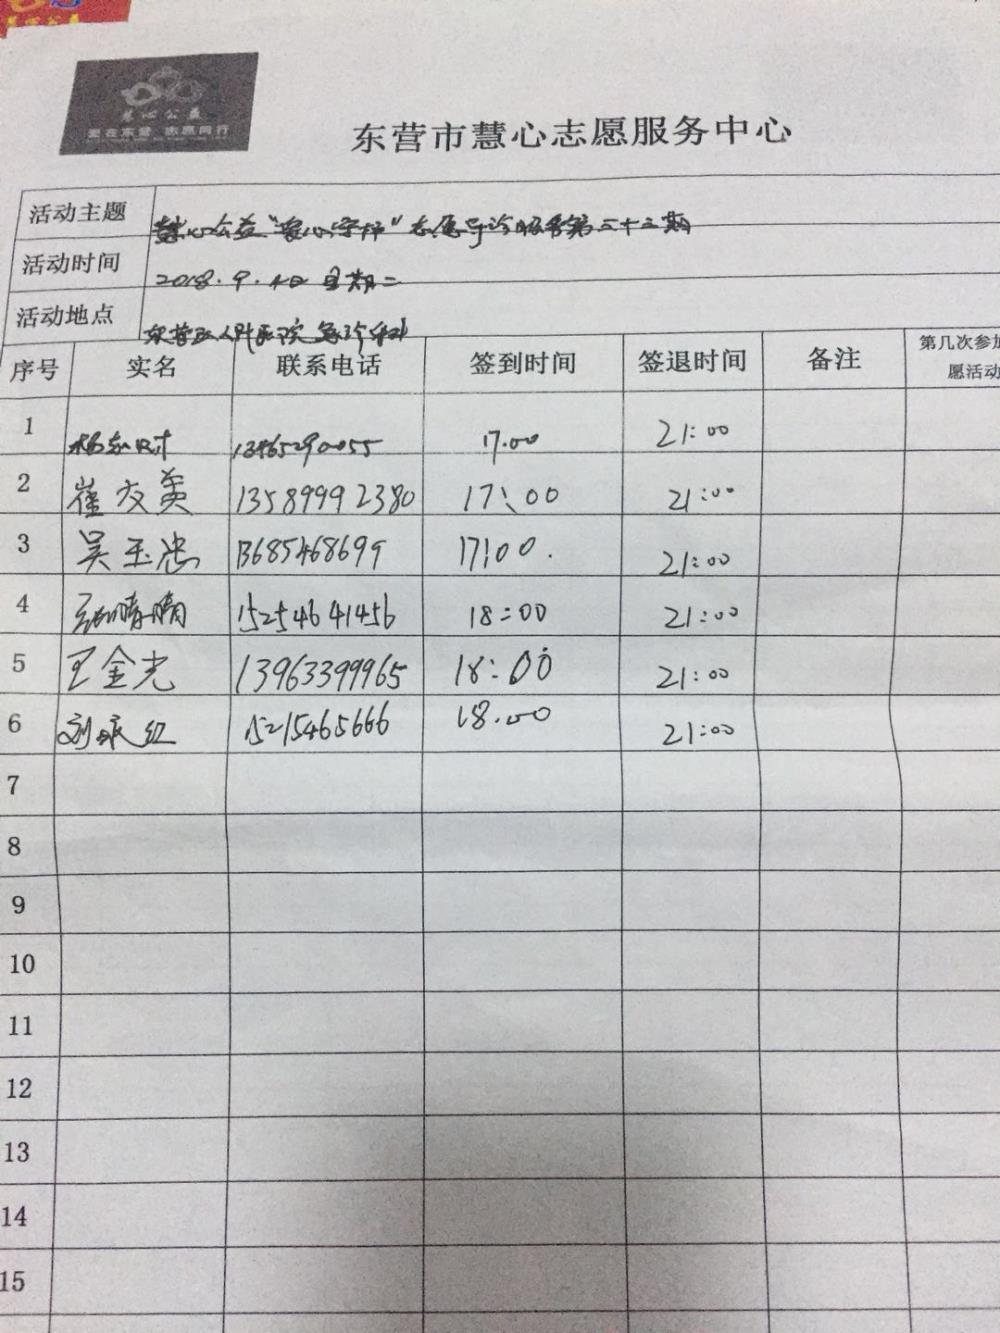 慧心公益
爱在东营 志愿同行
东营市慧心志愿服务中心
活动主题 慧心公益"爱心守护"志愿导诊服务第二十三期
活动时间 2018.9.4日 星期二
活动地点 东营区人民医院 急诊科
序号 实名 联系电话 签到时间 签退时间 备注 第几次参加
愿活动
1 17.00 21:00
2 崔友英 13589992380 17:00 21:00
3 吴玉忠 13685468699 17:00. 21:00
4 张晴晴 15254641456 18:00 21:00
5 王金光 13963399965 18:00 21:00
6 15215465666 18.00 21:00
7
8
9
10
11
12
13
14
15